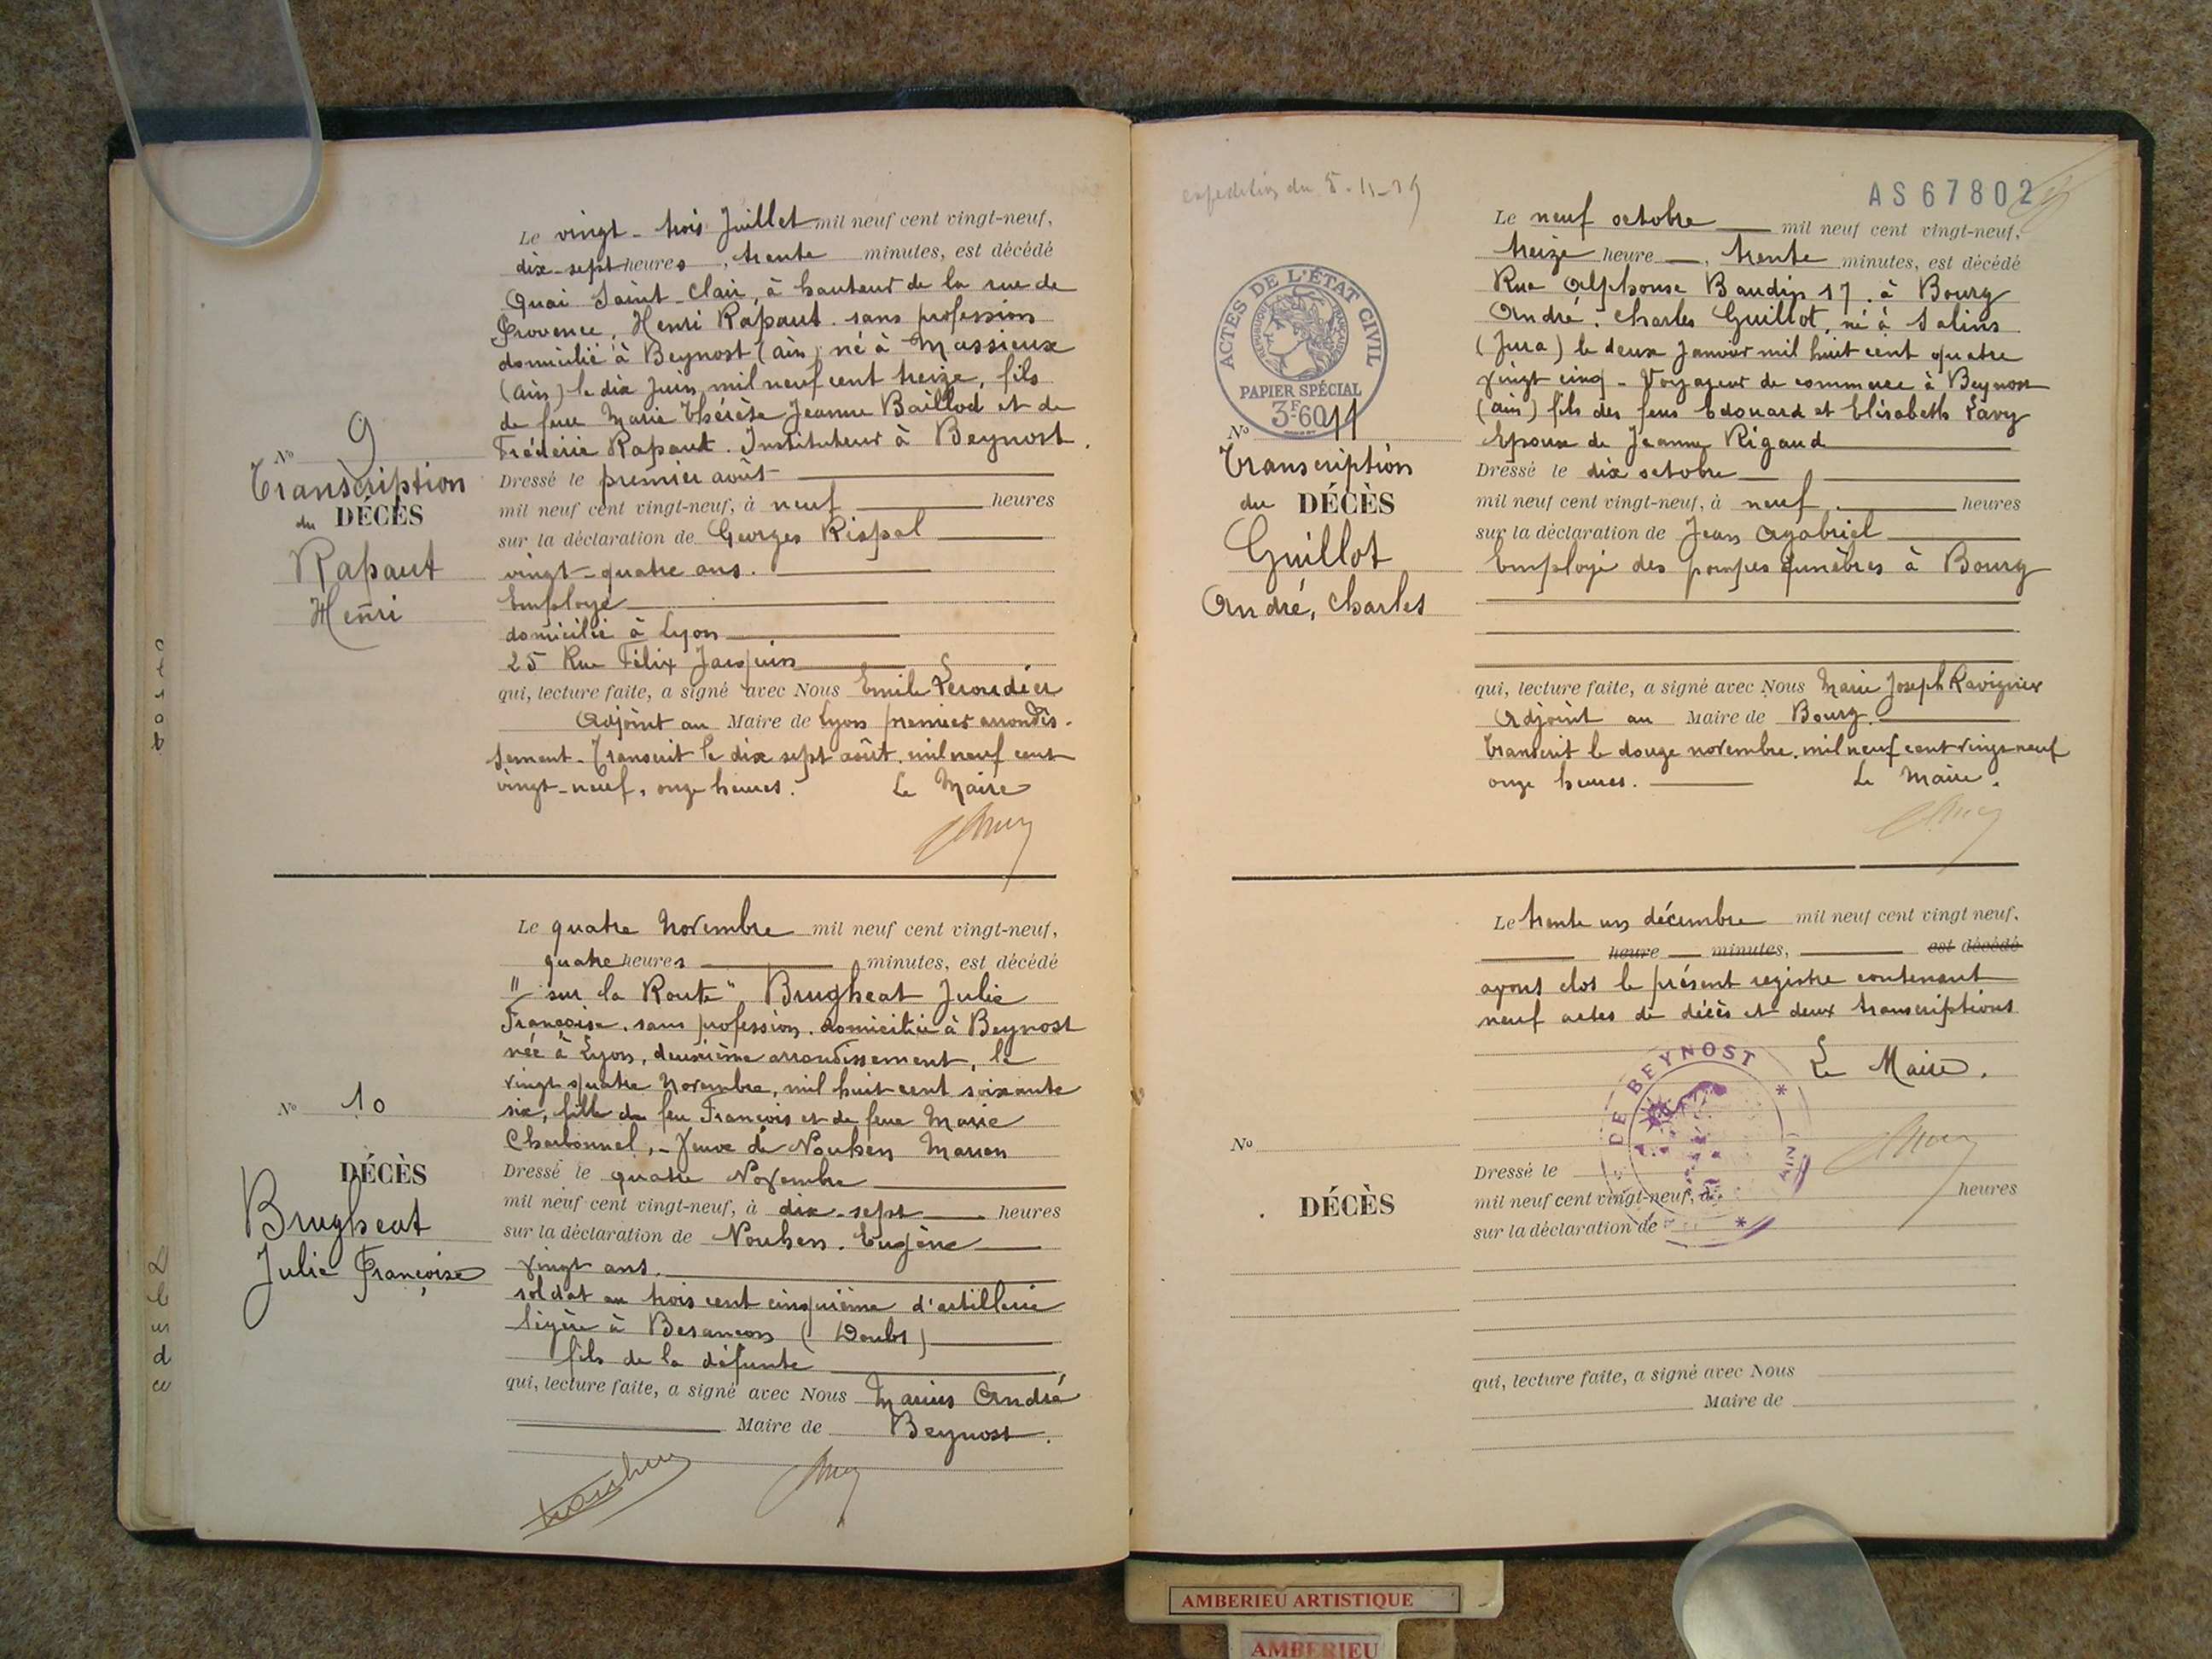 Le vingt-trois Juillet mil neuf cent vingt-neuf,
dix-sept heures, trente minutes, est décédé
Quai Saint-Clair, à hauteur de la rue de
Provence, Henri Rapaut. sans profession
domicilié à Beynost (Ain) né à Massieux
(Ain) le dix Juin mil neuf cent treize, fils
de feue Marie Thérèse Jeanne Baillod et de
Frédéric Rapaut. Instituteur à Beynost.
No 9
Transcription
du DÉCÈS
Rapaut
Henri
Dressé le premier août
mil neuf cent vingt-neuf, à neuf heures
sur la déclaration de Georges Rispal
vingt-quatre ans.
Employé
domicilié à Lyon
25 Rue Félix Jacquin
qui, lecture faite, a signé avec Nous Emile Peroudier
Adjoint au Maire de Lyon premier arrondis-
sement. Transcrit le dix sept août, mil neuf cent
vingt-neuf, onze heures. Le Maire
Le quatre Novembre mil neuf cent vingt-neuf,
quatre heures minutes, est décédé
"sur la Route" Brugheat Julie
Françoise, sans profession. domiciliée à Beynost
née à Lyon, deuxième arrondissement, le
vingt quatre Novembre, mil huit cent soixante
six, fille de feu François et de feue Marie
Charbonnel, - Veuve de Nouhen Marien
No 10
DÉCÈS
Brugheat
Julie Françoise
Dressé le quatre Novembre
mil neuf cent vingt-neuf, à dix-sept heures
sur la déclaration de Nouhen. Eugène
vingt ans.
soldat au trois cent cinquième d'artillerie
légère à Besançon (Doubs)
fils de la défunte
qui, lecture faite, a signé avec Nous Marius André
Maire de Beynost.
Nouhen
expédition du 5-11-
AS67802
ACTES DE L'ÉTAT CIVIL
RÉPUBLIQUE FRANÇAISE
PAPIER SPÉCIAL
3F60
Le neuf octobre mil neuf cent vingt-neuf,
treize heure, trente minutes, est décédé
Rue Alphonse Baudin 17. à Bourg
André. Charles Guillot, né à Salins
(Jura) le deux Janvier mil huit cent quatre
vingt cinq - Voyageur de commerce à Beynost
(Ain) fils des feus Edouard et Elisabeth Lavy
Epoux de Jeanne Rigaud
No 11
Transcription
du DÉCÈS
Guillot
André, Charles
Dressé le dix octobre
mil neuf cent vingt-neuf, à neuf heures
sur la déclaration de Jean Agabriel
Employé des pompes funèbres à Bourg
qui, lecture faite, a signé avec Nous Marie Joseph Ravignier
Adjoint au Maire de Bourg.
Transcrit le douze novembre. mil neuf cent vingt neuf
onze heures. Le Maire.
Le trente un décembre mil neuf cent vingt neuf,
heure minutes, est décédé
avons clos le présent registre contenant
neuf actes de décès et deux transcriptions
Le Maire.
DE BEYNOST
(AIN)
No
DÉCÈS
Dressé le
mil neuf cent vingt-neuf, à heures
sur la déclaration de
qui, lecture faite, a signé avec Nous
Maire de
AMBERIEU ARTISTIQUE
AMBERIEU